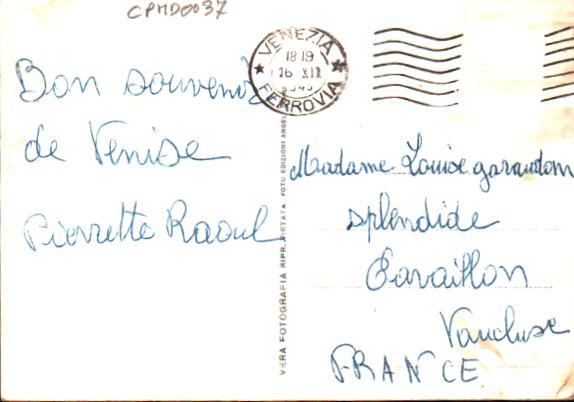 CPMD0037
VENEZIA
18 19
16 XII
FERROVIA
Bon souvenir
de Venise
Pierrette Raoul
VERA FOTOGRAFIA RIPR. VIETATA FOTO EDIZIONI
Madame Louise garaudon
splendide
Cavaillon
Vaucluse
FRANCE